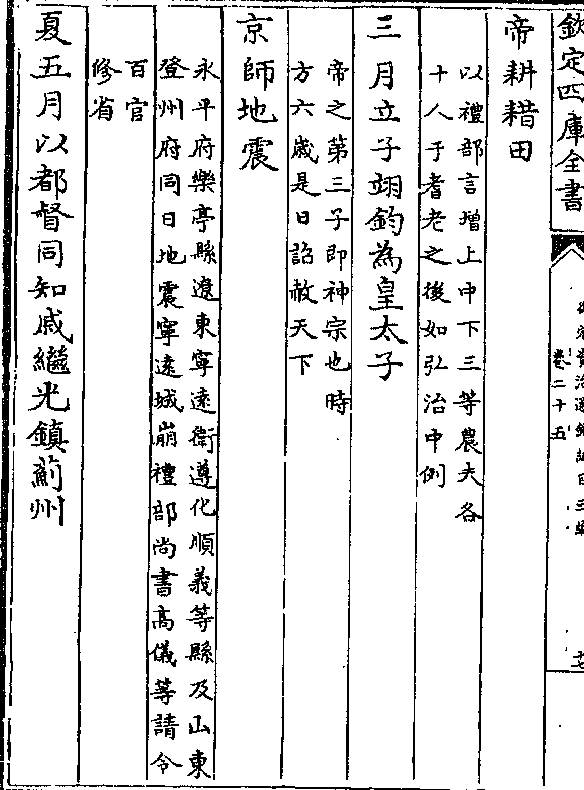 欽定四庫全書
卷二十五
帝耕耤田
以禮部言增上中下三等農夫各
十人于耆老之後如弘治中例
三月立子翊鈞為皇太子
帝之第三子即神宗也時
方六歲是日詔赦天下
京師地震
永平府樂亭縣遼東寧遠衛遵化順義等縣及山東
登州府同日地震寧遠城崩禮部尚書高儀等請令
百官
修省
夏五月以都督同知戚繼光鎮薊州